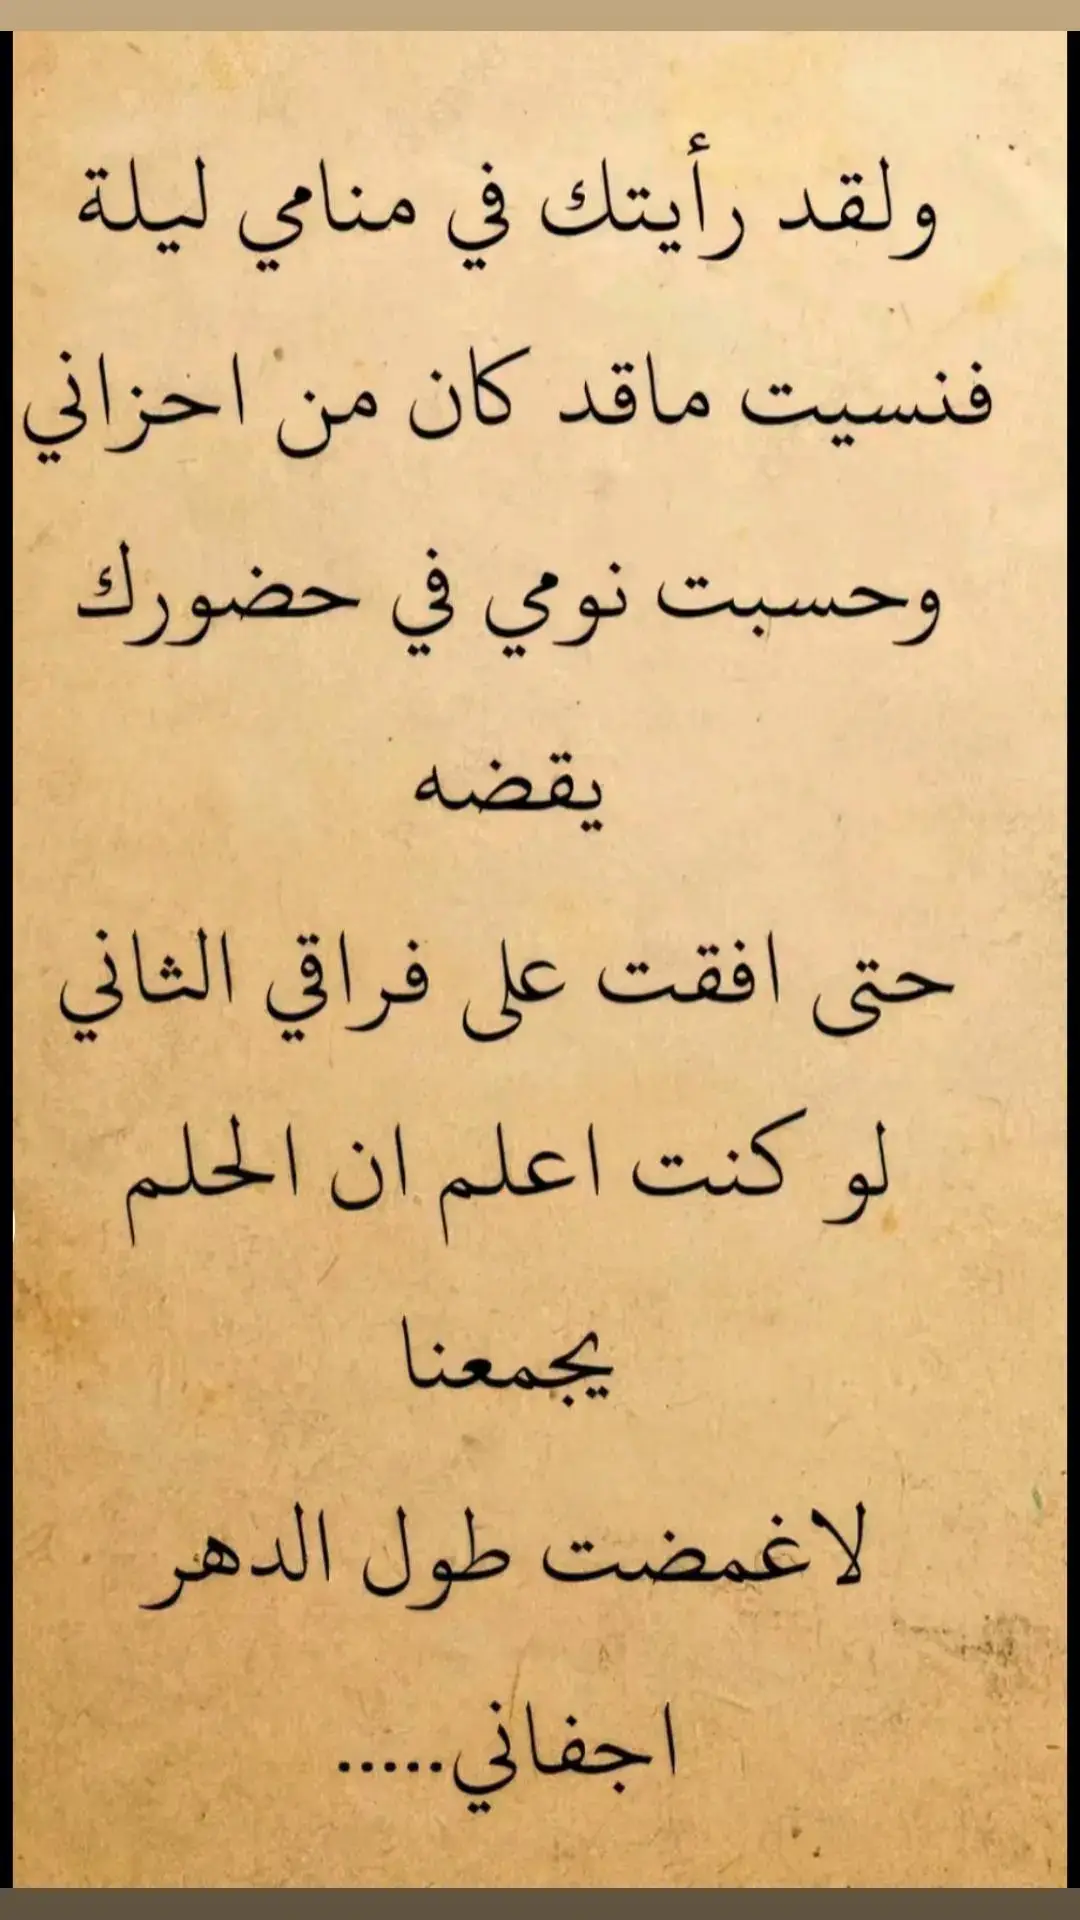 ولقد رأيتك في منامي ليلة
فنسيت ماقد كان من احزاني
وحسبت نومي في حضورك
يقضه
حتى افقت على فراقي الثاني
لو كنت اعلم ان الحلم
يجمعنا
لاغمضت طول الدهر
اجفاني.....